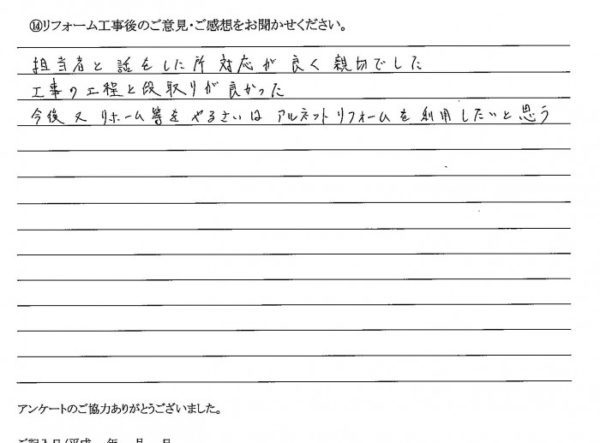 ⑭リフォーム工事後のご意見・ご感想をお聞かせください。
担当者と話をした所 対応が良く親切でした
工事の工程と段取りが良かった
今後又リホーム等をやるさいは アルネットリフォームを利用したいと思う
アンケートのご協力ありがとうございました。
ご記入日(平成 年 月 日